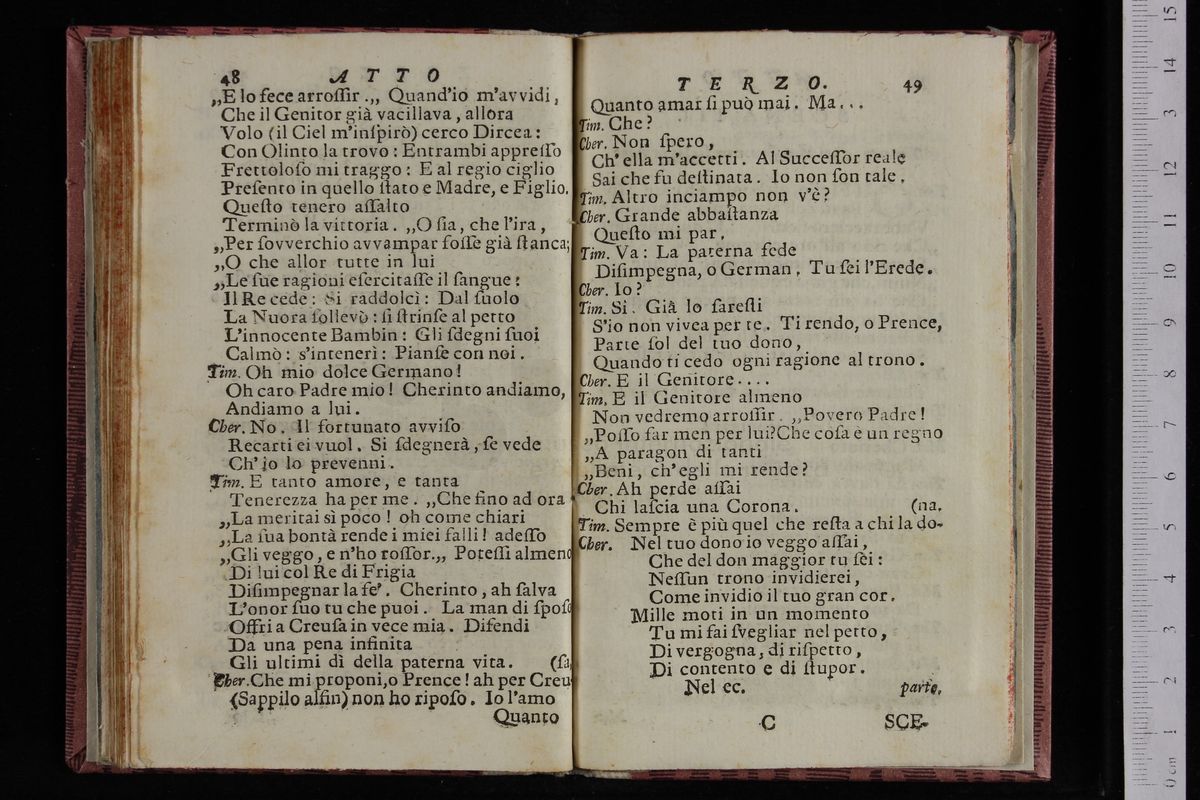 48 ATTO
„E lo fece arroſſir.„ Quand'io m'avvidi,
Che il Genitor già vacillava, allora
Volo (il Ciel m'inſpirò) cerco Dircea:
Con Olinto la trovo: Entrambi appreſſo
Frettoloſo mi traggo: E al regio ciglio
Preſento in quello ſtato e Madre, e Figlio.
Queſto tenero aſſalto
Terminò la vittoria. „O ſia, che l'ira,
„Per ſovverchio avvampar foſſe già ſtanca;
„O che allor tutte in lui
„Le ſue ragioni eſercitaſſe il ſangue:
Il Re cede: Si raddolcì: Dal ſuolo
La Nuora ſollevò: ſi ſtrinſe al petto
L'innocente Bambin: Gli ſdegni ſuoi
Calmò: s'intenerì: Pianſe con noi.
Tim. Oh mio dolce Germano!
Oh caro Padre mio! Cherinto andiamo,
Andiamo a lui.
Cher. No. Il fortunato avviſo
Recarti ei vuol. Si ſdegnerà, ſe vede
Ch'io lo prevenni.
Tim. E tanto amore, e tanta
Tenerezza ha per me. „Che fino ad ora
„La meritai sì poco! oh come chiari
„La ſua bontà rende i miei falli! adeſſo
„Gli veggo, e n'ho roſſor.„ Poteſſi almeno
Di lui col Re di Frigia
Diſimpegnar la fe'. Cherinto, ah ſalva
L'onor ſuo tu che puoi. La man di ſpoſo
Offri a Creuſa in vece mia. Difendi
Da una pena infinita
Gli ultimi dì della paterna vita. (ſa,
Cher. Che mi proponi, o Prence! ah per Creu
(Sappilo alfin) non ho ripoſo. Io l'amo
Quanto
TERZO. 49
Quanto amar ſi può mai. Ma...
Tim. Che?
Cher. Non ſpero,
Ch'ella m'accetti. Al Succeſſor reale
Sai che fu deſtinata. Io non ſon tale.
Tim. Altro inciampo non v'è?
Cher. Grande abbaſtanza
Queſto mi par.
Tim. Va: La paterna fede
Diſimpegna, o German. Tu ſei l'Erede.
Cher. Io?
Tim. Sì. Già lo ſareſti
S'io non vivea per te. Ti rendo, o Prence,
Parte ſol del tuo dono,
Quando ti cedo ogni ragione al trono.
Cher. E il Genitore....
Tim. E il Genitore almeno
Non vedremo arroſſir. „Povero Padre!
„Poſſo far men per lui? Che coſa è un regno
„A paragon di tanti
„Beni, ch'egli mi rende?
Cher. Ah perde aſſai
Chi laſcia una Corona. (na.
Tim. Sempre è più quel che reſta a chi la do-
Cher. Nel tuo dono io veggo aſſai,
Che del don maggior tu ſei:
Neſſun trono invidierei,
Come invidio il tuo gran cor.
Mille moti in un momento
Tu mi fai ſvegliar nel petto,
Di vergogna, di riſpetto,
Di contento e di ſtupor.
Nel ec. parte.
C SCE-